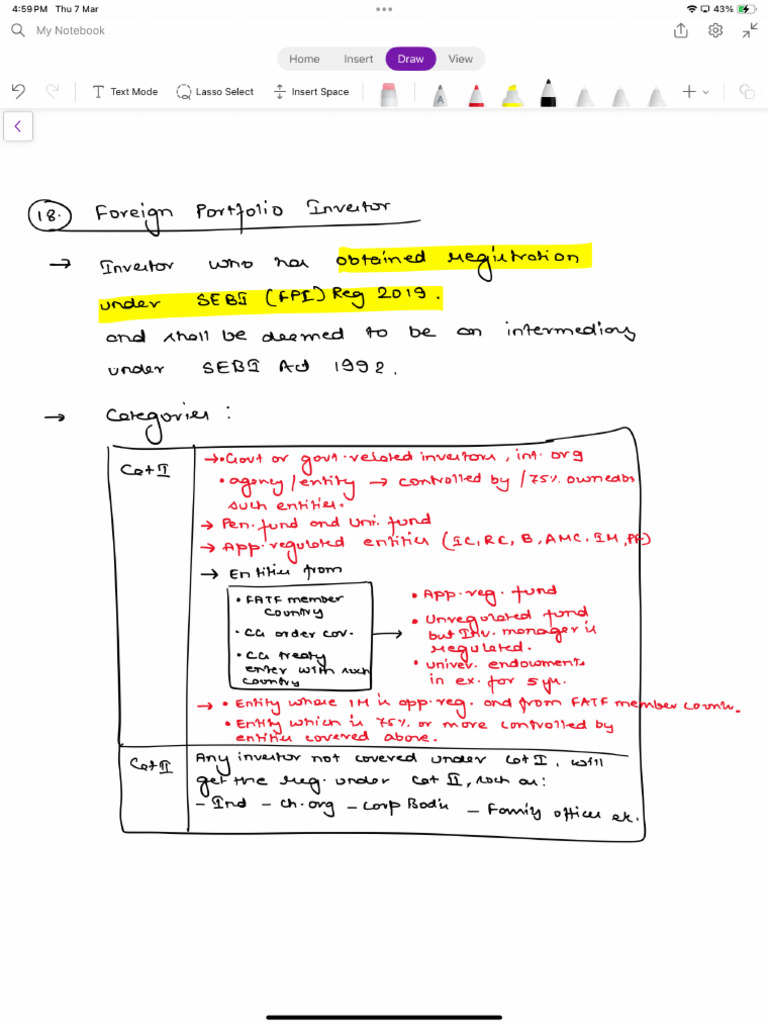 4:59 PM Thu 7 Mar
43%
My Notebook
Home Insert Draw View
Text Mode Lasso Select Insert Space
18. Foreign Portfolio Investor
→ Investor who has obtained registration
under SEBI (FPI) Reg 2019.
and shall be deemed to be an intermediary
under SEBI Act 1992.
→ Categories:
Cat I
→ • Govt or govt-related investors, int. org
• agency/entity → controlled by / 75% owned by
such entities.
→ Pen. fund and Uni. fund
→ App. regulated entities (IC, RC, B, AMC, IM, PF)
→ Entities from
• FATF member
country
• CG order cov.
• CG treaty
enter with such
country
→
• App. reg. fund
• Unregulated fund
but Inv. manager is
regulated.
• Univer. endowments
in ex. for 5 yr.
→ • Entity where IM is app. reg. and from FATF member country.
• Entity which is 75% or more controlled by
entities covered above.
Cat II
Any investor not covered under Cat I, will
get the reg. under Cat II, such as:
– Ind – ch. org – Corp Bodies – Family offices etc.